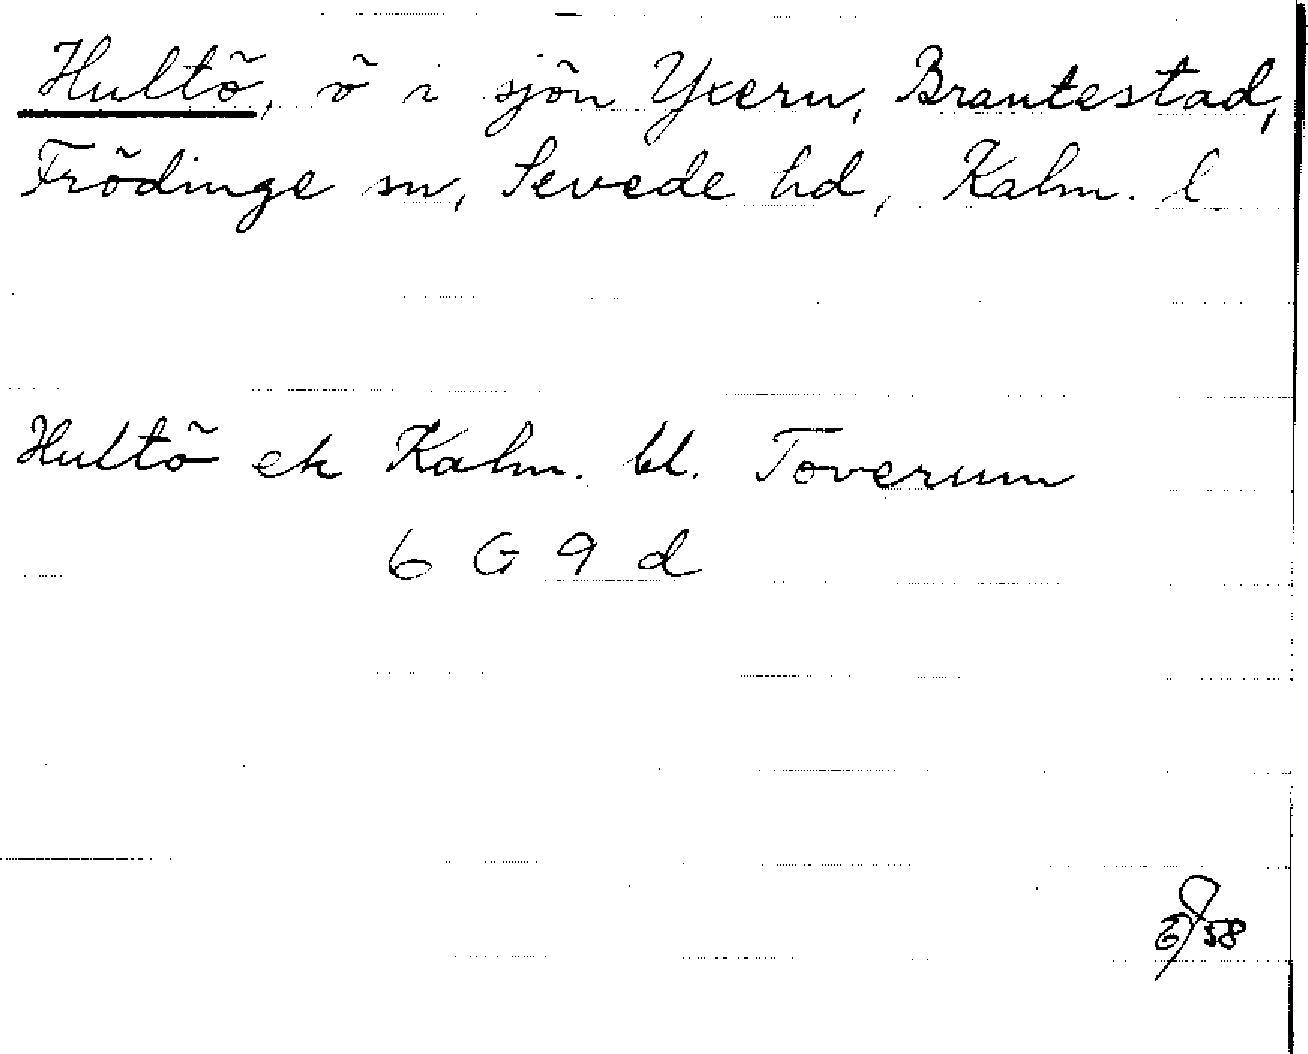 Hultö, ö i sjön Yxern, Brantestad,
Frödinge sn, Sevede hd, Kalm. l
Hultö ek Kalm. bl. Toverum
6 G 9 d
58